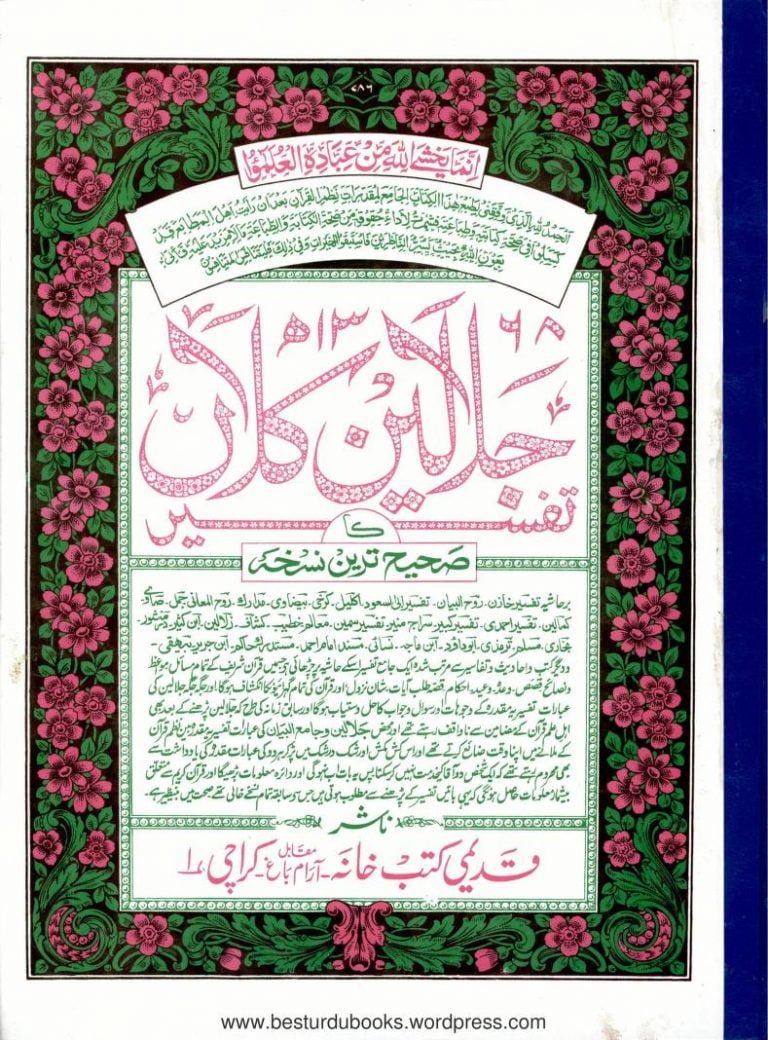 ۷۸۶
إِنَّمَا يَخْشَى اللهَ مِنْ عِبَادِهِ الْعُلَمَٰٓؤُا
الحمد لله الذي وفقني لطبع هذا الكتاب الجامع لمقدرات نظم القرآن بعد ان رأيت اهل المطابع قد
۱۳۶۸ھ
تفسیر جلالین کلاں
کا
صحیح ترین نسخہ
برحاشیہ تفسیر خازن۔ روح البیان۔ تفسیر ابی السعود۔ اکلیل۔ کرخی۔ بیضاوی۔ مدارک۔ روح المعانی۔ جمل۔ صاوی
کمالین۔ تفسیر احمدی۔ تفسیر کبیر۔ سراج منیر۔ تفسیر سمین۔ معالم۔ خطیب۔ کشاف۔ زلالین۔ ابن کثیر۔ در منثور۔
بخاری۔ مسلم۔ ترمذی۔ ابوداؤد۔ ابن ماجہ۔ نسائی۔ مسند امام احمد۔ مستدرک حاکم۔ ابن جریر۔ بیہقی
ودیگر کتب واحادیث وتفاسیر سے مرتب شدہ ایک جامع تفسیر اسکے حاشیہ پر چڑھائی گئی ہے جسمیں قرآن شریف کے تمام مسائل مواعظ
ونصائح قصص۔ وعدہ وعید۔ احکام۔ قصۂ طلب آیات۔ شان نزول اور قرآن کی تمام گہرائیوں کا انکشاف ہوگا اور جگہ جگہ جلالین کی
عبارات تفسیریہ مقدرہ کے وجوہات اور سوال وجواب کا حل دستیاب ہوگا اور سابق زمانہ کی طرح کہ جلالین پڑھنے کے بعد بھی
اہل علم قرآن کے مضامین سے ناواقف رہتے تھے اور محض جلالین وجامع البیان کی عبارات تفسیریہ مقدرہ بین نظم قرآن
کے ملانے میں اپنا وقت ضائع کرتے تھے اور اس کش مکش اور شک در شک میں پڑ کر ہر دو کی عبارات مقدرہ کی یادداشت سے
بھی محروم رہتے تھے کہ ایک شخص دو آقا کی خدمت نہیں کرسکتا پس یہ بات اب نہ ہوگی اور دائرہ معلومات وسیع ہوگا اور قرآن کریم سے متعلق
بیشمار معلومات حاصل ہونگی کہ یہی باتیں تفسیر کے پڑھنے سے مطلوب ہوتی ہیں جس سے سابقہ تمام نسخے خالی تھے صحت میں بے نظیر ہے۔
ناشر
قدیمی کتب خانہ۔ مقابل آرام باغ۔ کراچی ۱
www.besturdubooks.wordpress.com